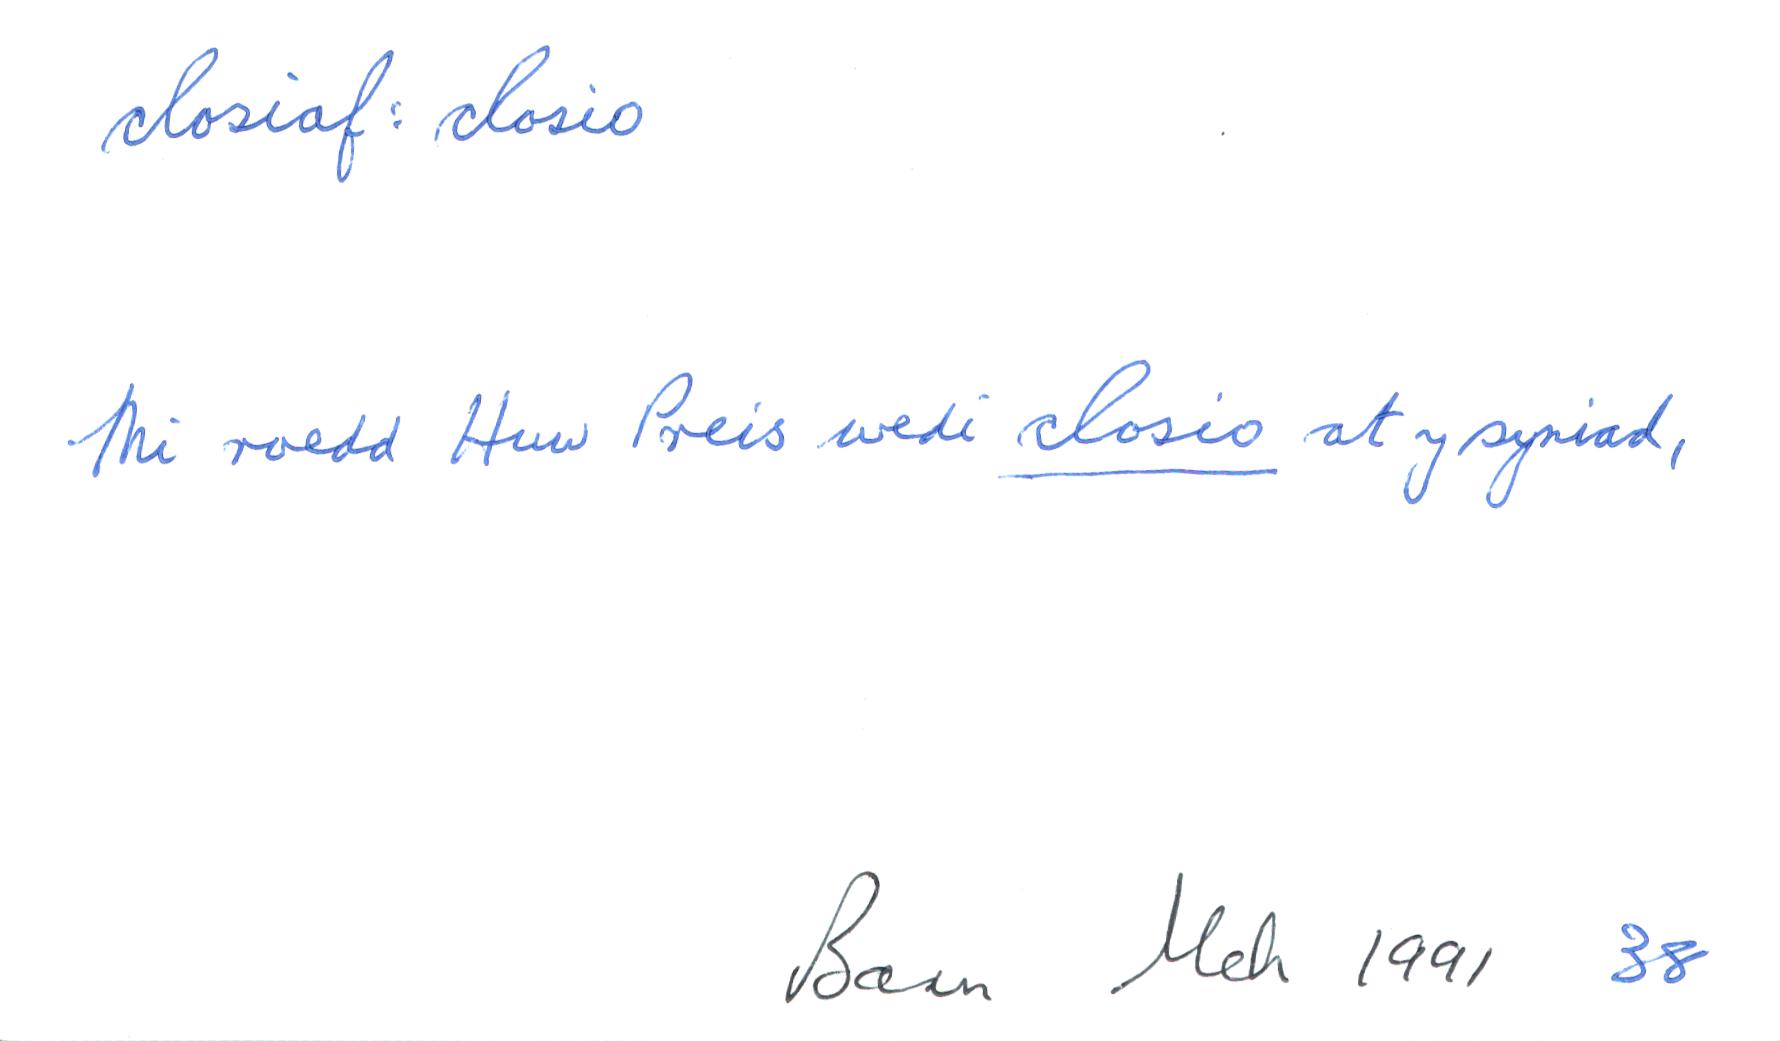 closiaf: closio
Mi roedd Huw Preis wedi closio at y syniad,
Barn Meh 1991 38